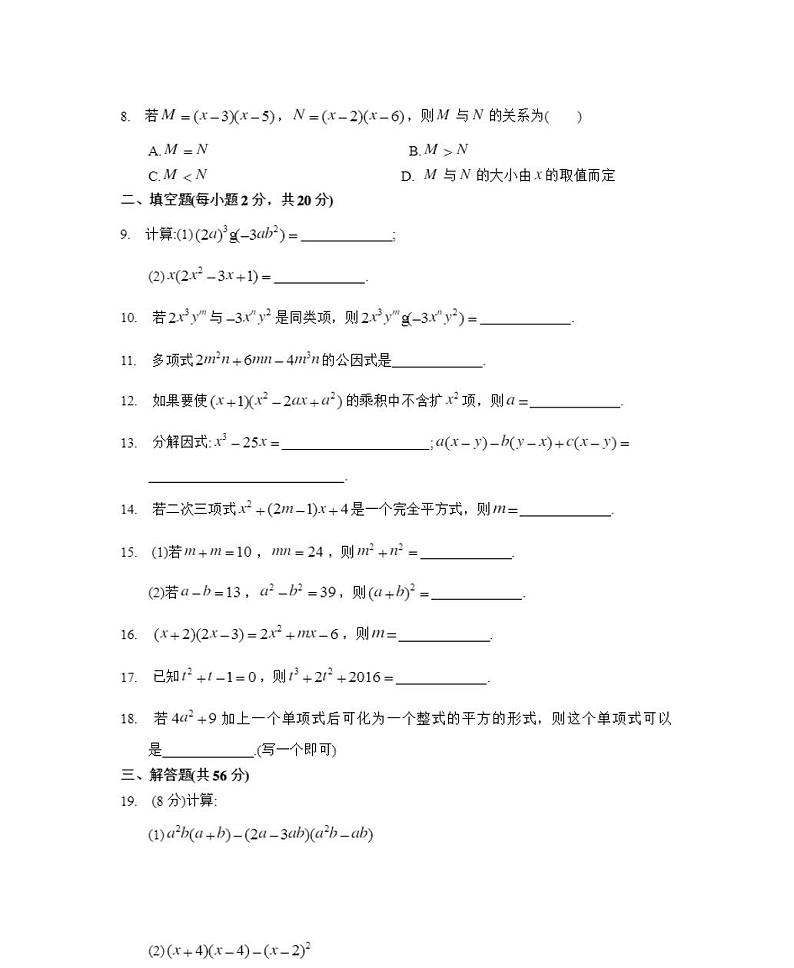 8. 若M=(x-3)(x-5)，N=(x-2)(x-6)，则M与N的关系为(　　)
A.M=N　B.M>N
C.M<N　D. M与N的大小由x的取值而定
二、填空题(每小题2分，共20分)
9. 计算:(1)(2a)³g(-3ab²)=____________;
(2)x(2x²-3x+1)=____________.
10. 若2x³yᵐ与-3xⁿy²是同类项，则2x³yᵐg(-3xⁿy²)=____________.
11. 多项式2m²n+6mn-4m³n的公因式是____________.
12. 如果要使(x+1)(x²-2ax+a²)的乘积中不含扩x²项，则a=____________.
13. 分解因式:x³-25x=____________________;a(x-y)-b(y-x)+c(x-y)=
__________________________.
14. 若二次三项式x²+(2m-1)x+4是一个完全平方式，则m=____________.
15. (1)若m+m=10，mn=24，则m²+n²=____________.
(2)若a-b=13，a²-b²=39，则(a+b)²=____________.
16. (x+2)(2x-3)=2x²+mx-6，则m=____________.
17. 已知t²+t-1=0，则t³+2t²+2016=____________.
18. 若4a²+9加上一个单项式后可化为一个整式的平方的形式，则这个单项式可以
是____________.(写一个即可)
三、解答题(共56分)
19. (8分)计算:
(1)a²b(a+b)-(2a-3ab)(a²b-ab)
(2)(x+4)(x-4)-(x-2)²